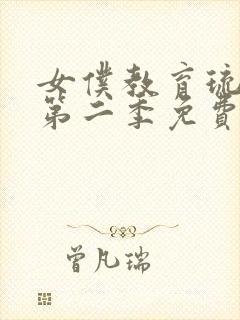 女僕教育琉
第二季免費
曾凡瑞